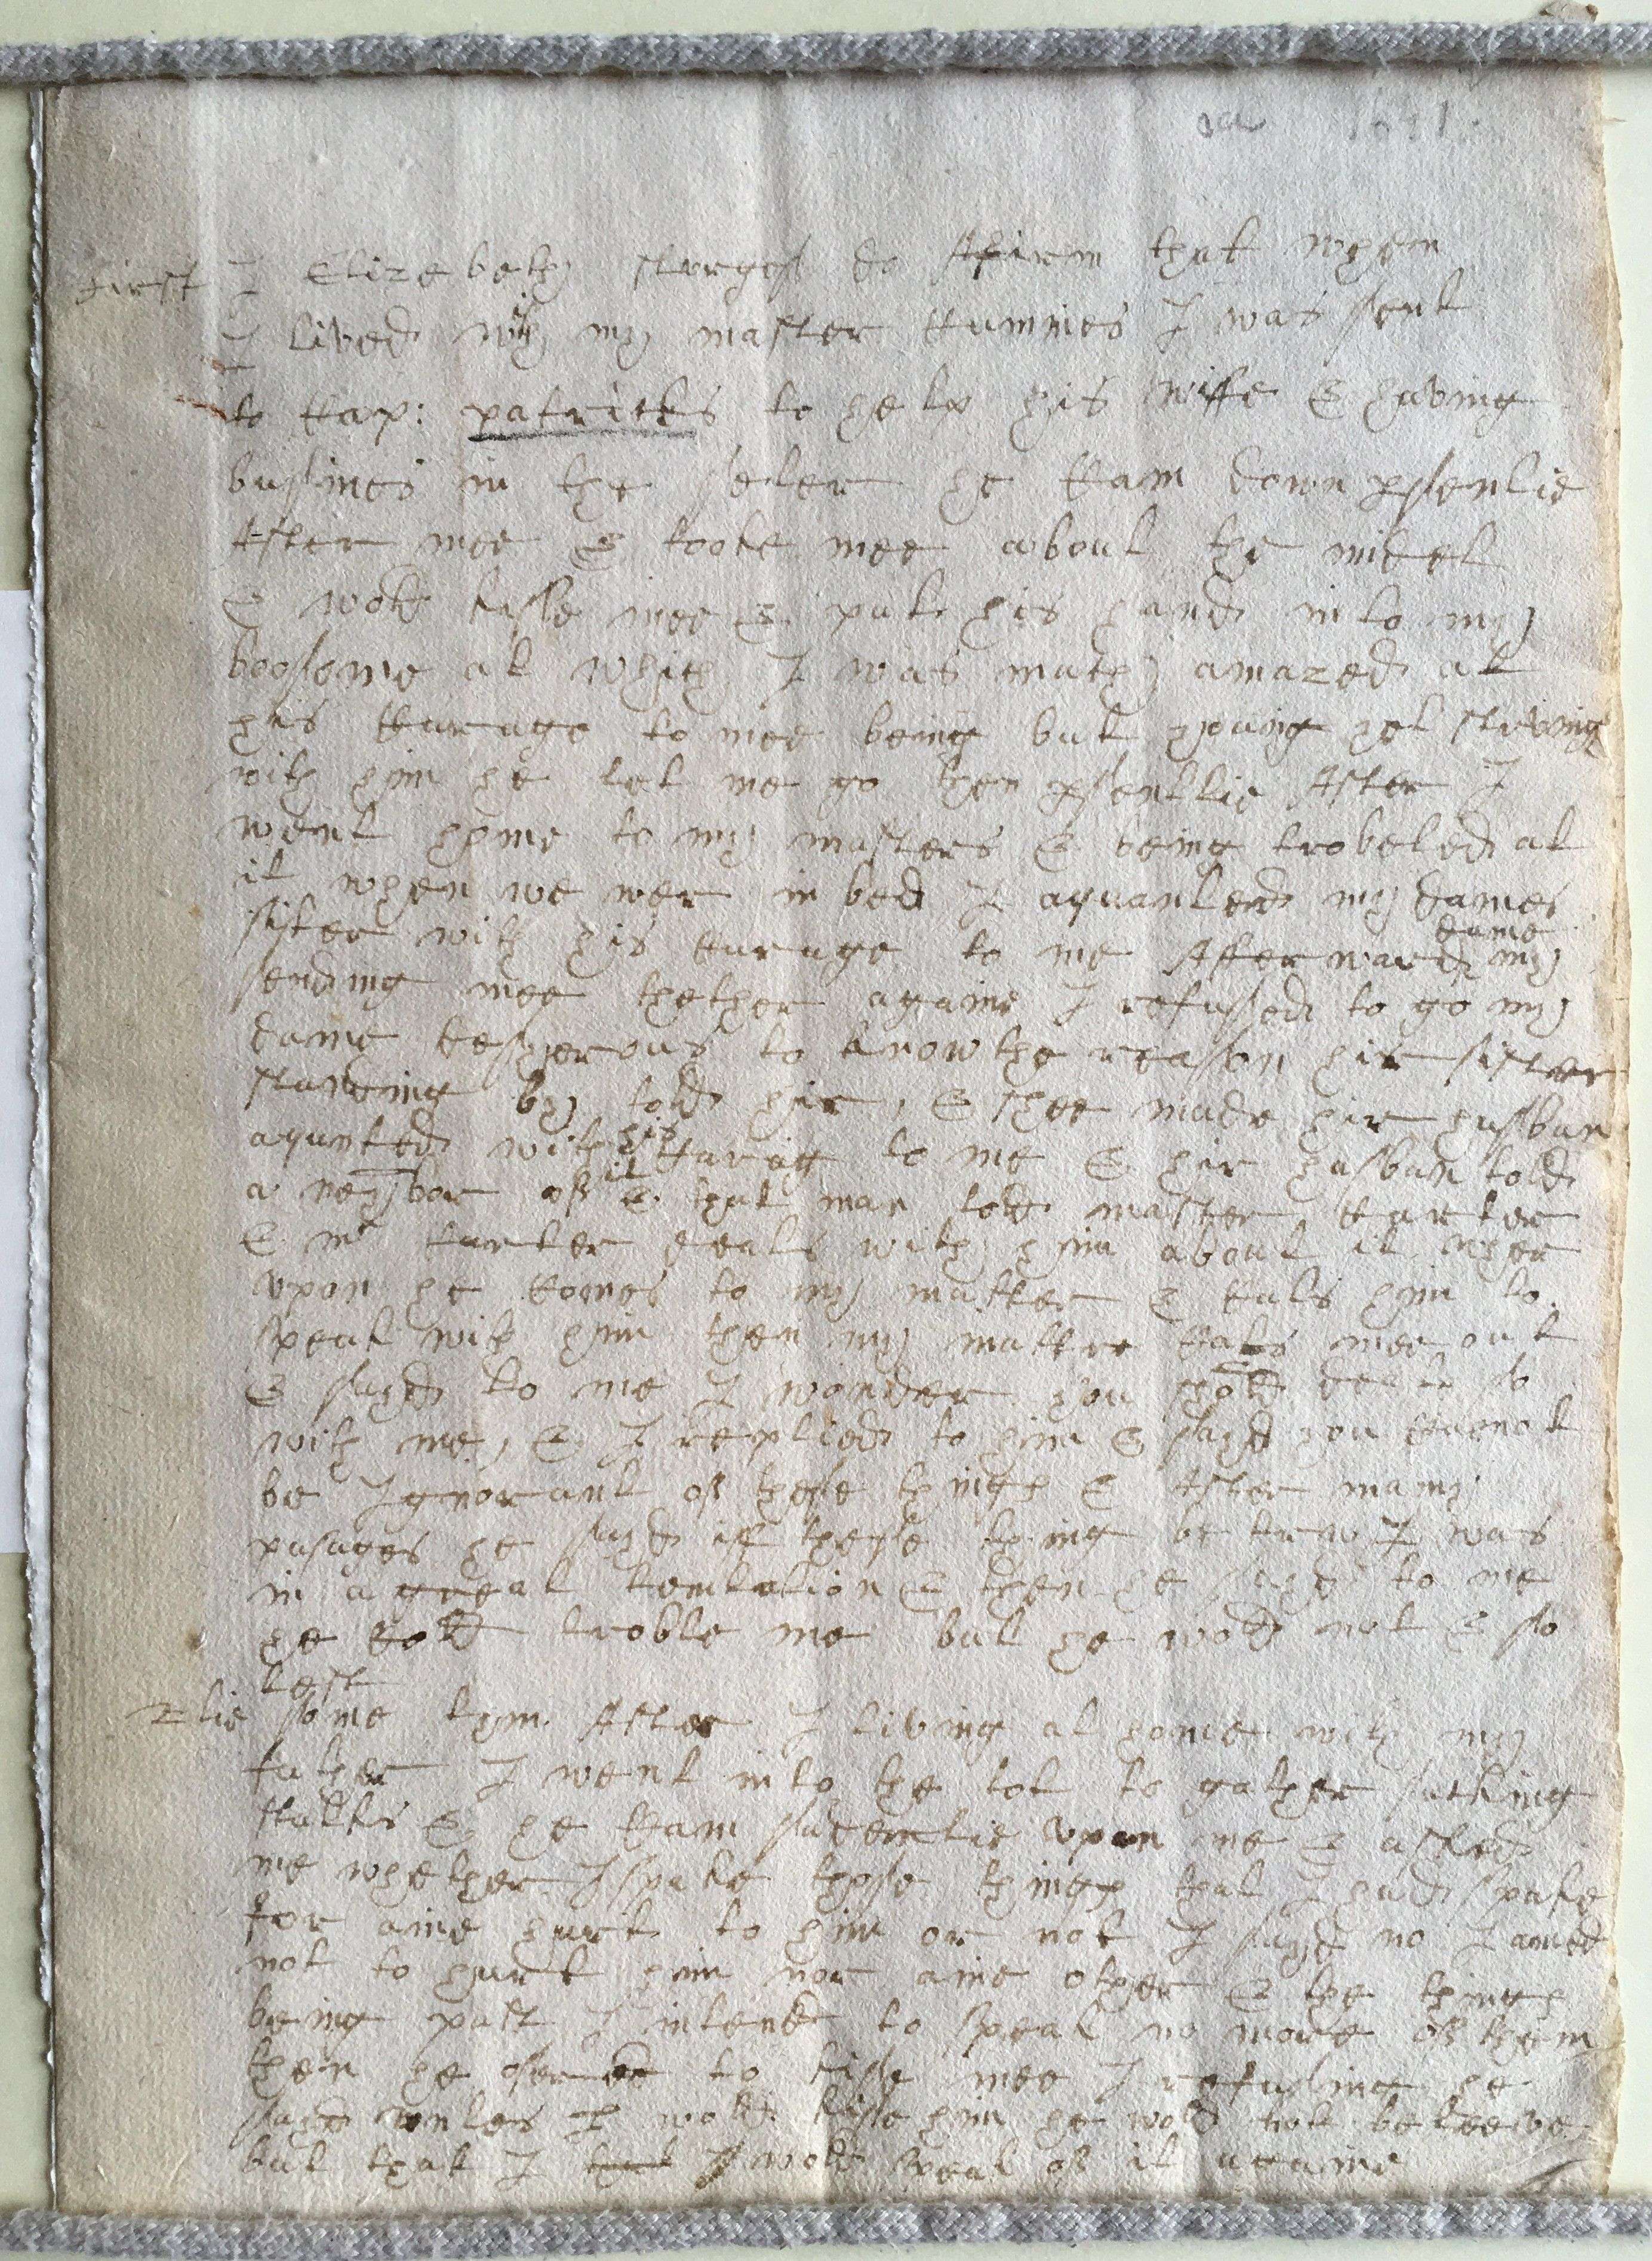 1641
first I Elizebeth sturges do Afirm that when
I lived with my master Kummes I was sent
to Kap: patricks to help his wiffe & having
busines in the seler he Kam down psentlie
After mee & tooke mee about the midel
& wold kisse mee & put his hand into my
boosome at which I was much amazed at
his Karuage to mee being but young yet striving
with him he let me go then psentlie After I
went home to my masters & being trobeled at
it when we wer in bed I aquanted my dames
sister with his Karuage to me Afterward my dame
sending mee thether againe I refussed to go my
dame desyerous to know the reason hir sister
standing by told hir, & shee made hir husban
aqunted with his Kariag to me & hir husban told
a neybor of it & that man told master Karter
& mr Karter deals with him about it wher
upon he Komes to my master & Kals him to
speak with him then my master Kals mee out
& sayd to me I wonder you wold deal so
with me, & I replied to him & sayd you Kanot
be Ignorant of these things & After many
pasages he sayd if these thing be trew I was
in a great temtation & then he sayd to me
he Kold troble me but he wold not & so
left
2lie some tym After I living at home with my
father I went into the lot to gather
stalks & he Kam sudenlie upon me & asked
me whether I spake those things that I had spake
for anie hurt to him or not I sayd no I amed
not to hurt him nor anie other & the things
being past I intend to speak no more of them
then he ofered to kisse mee I refussing he
sayd unles I wold kisse him he wold not beleeve
but that I wold speak of it againe